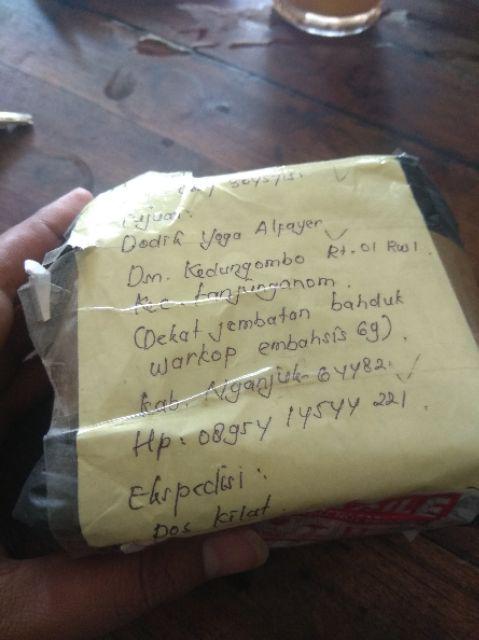 Tujuan:
Dodik Yoga Alfayer
Dsn. Kedungombo Rt. 01 Rw 1.
Kec. Tanjunganom.
(Dekat jembatan bahduk
warkop embahsis 6g).
Kab. Nganjuk 64482.
Hp: 08954 14544 221.
Ekspedisi:
Pos kilat.